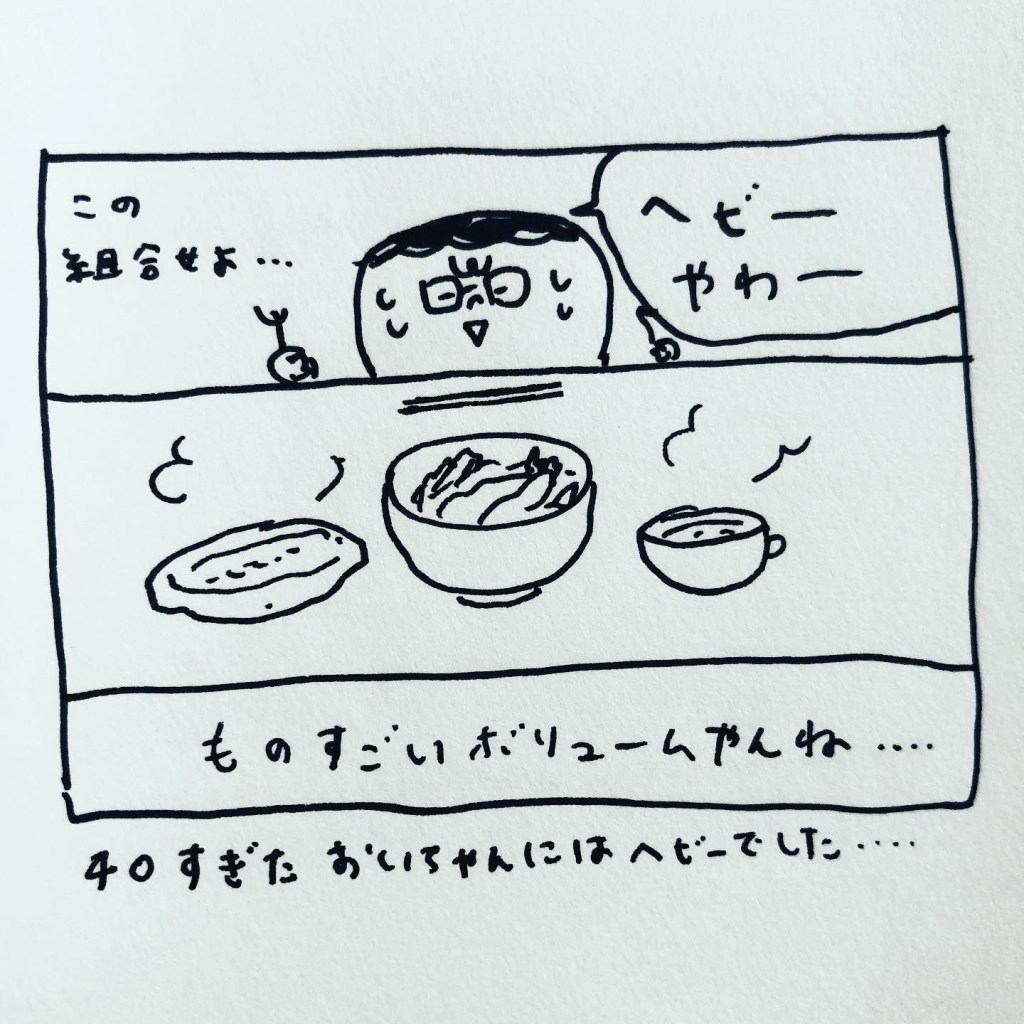 この
組合せよ…
ヘビー
やわー
ものすごいボリュームやんね‥‥
40すぎたおいちゃんにはヘビーでした‥‥